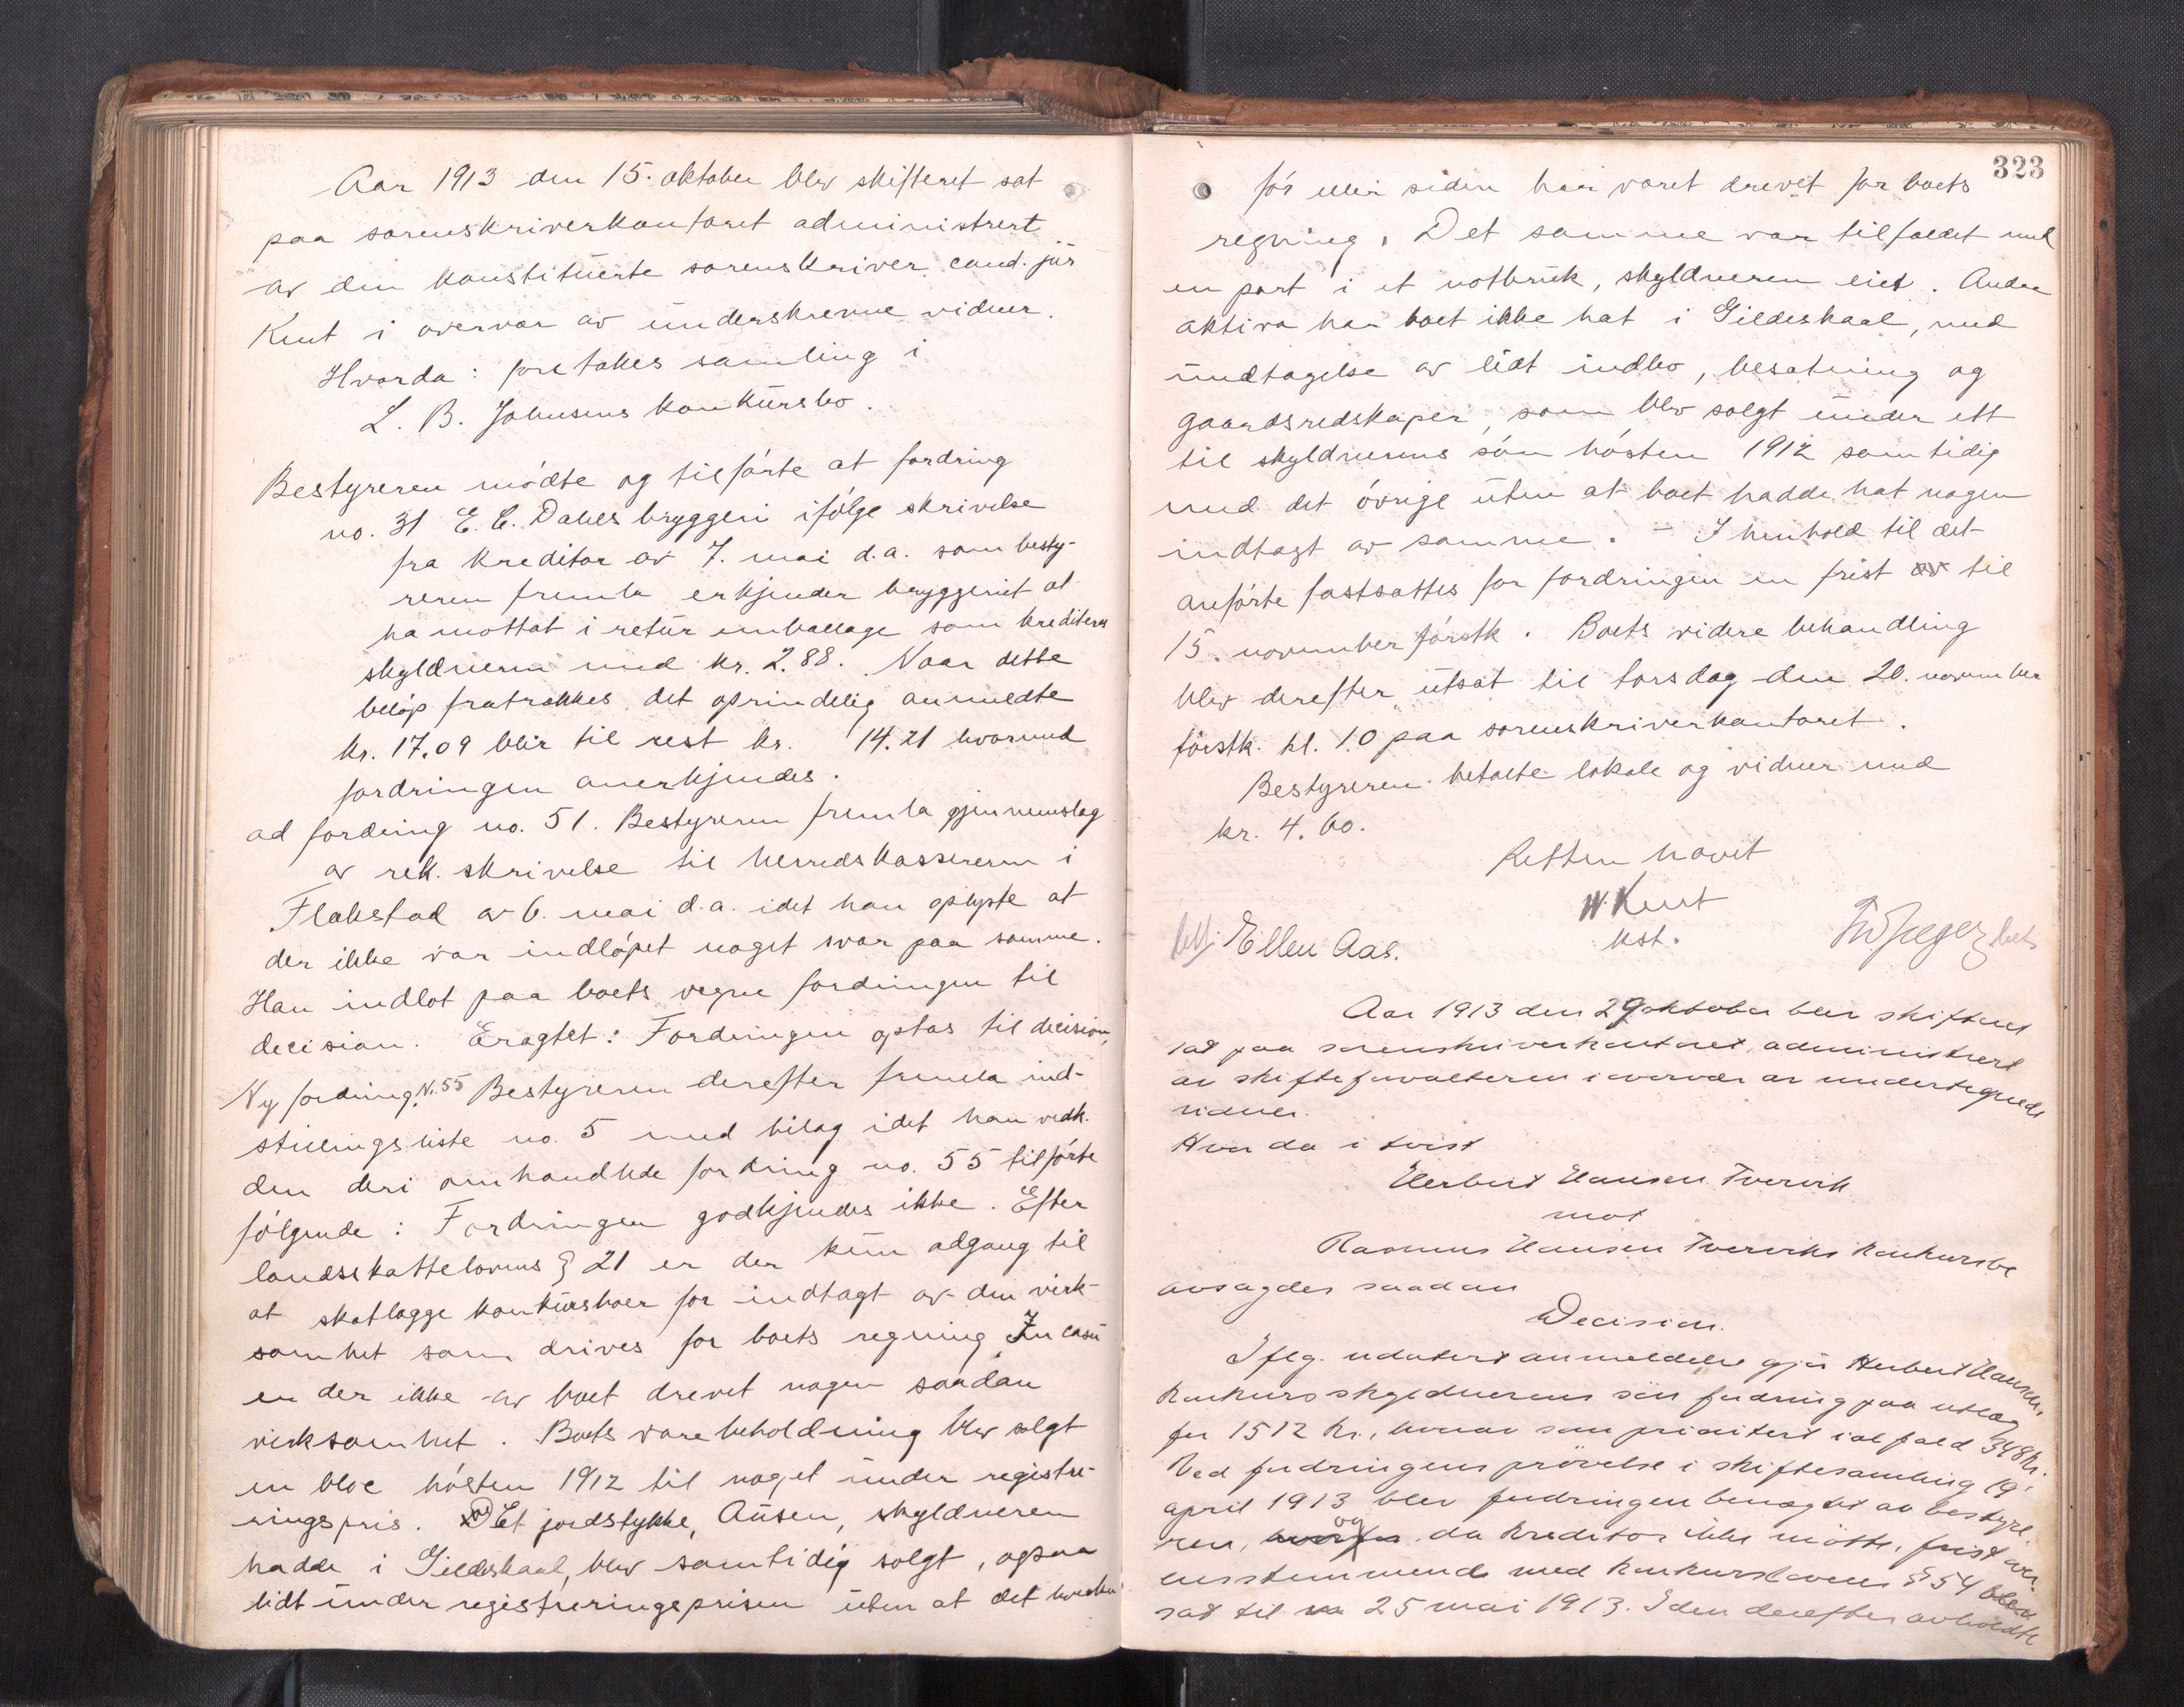 Aar 1913 den 15. oktober blev skifteret sat
paa sorenskriverkontoret administrert
av den konstituerte sorenskriver cand. jur
Kent i overvær av underskrevne vidner.
Hvorda: foretokes samling i
L. B. Johnsens konkursbo.
Bestyreren mødte og tilførte at fordring
no. 31 E. C. Dahls bryggeri ifølge skrivelse
fra kreditor av 7. mai d.a. som besty-
reren fremla erkjender bryggeriet at
ha mottat i retur emballage som krediteres
skyldneren med kr. 2.88. Naar dette
beløp fratrækkes det oprindelig anmeldte
kr. 17.09 blir til rest kr. 14.21 hvormed
fordringen anerkjendes.
ad fordring no. 51. Bestyreren fremla gjennemslag
av rek. skrivelse til herredskassereren i
Flakstad av 6. mai d.a. idet han oplyste at
der ikke var indløpet noget svar paa samme.
Han indlot paa boets vegne fordringen til
decision. Eragtet: Fordringen optas til decision,
Ny fordring N. 55 Bestyreren derefter fremla ind-
stillingsliste no. 5 med bilag idet han vedk.
den deri omhandlede fordring no. 55 tilførte
følgende: Fordringen godkjendes ikke. Efter
landsskattelovens § 21 er der kun adgang til
at skatlægge konkursboer for indtægt av den virk-
somhet som drives for boets regning. In casu
er der ikke av boet drevet nogen saadan
virksomhet. Boets varebeholdning blev solgt
en bloc høsten 1912 til noget under registre-
ringspris. Det jordstykke, Ausen, skyldneren
hadde i Gildeskaal, blev samtidig solgt, ogsaa
lidt under registreringsprisen uten at det hverken
323
før eller siden har været drevet for boets
regning. Det samme var tilfældet med
en part i et notbruk, skyldneren eiet. Andre
aktiva har boet ikke hat i Gildeskaal, med
undtagelse av lidt indbo, besætning og
gaardsredskaper, som blev solgt under ett
til skyldnerens søn høsten 1912 samtidig
med det øvrige uten at boet hadde hat nogen
indtægt av samme. - I henhold til det
anførte fastsattes for fordringen en frist av til
15. november førstk. Boets videre behandling
blev derefter utsat til torsdag den 20. november
førstk. kl. 10 paa sorenskriverkontoret.
Bestyreren betalte lokale og vidner med
kr. 4.60.
Retten hævet
W. Kent
kst.
bet. Ellen Aas.
bet.
Aar 1913 den 29 oktober blev skifteret
sat paa sorenskriverkontoret, administrert
av skifteforvalteren i overvær av undertegnede
vidner.
Hvor da i tvist
Herbert Hansen Tvervik
mot
Rasmus Hansen Tverviks konkursbo
avsagdes saadan
Decision.
Iflg. udatert anmeldelse gjør Herbert Hansen,
konkursskyldnerens søn fordring paa utlæg
for 1512 kr., hvorav som prioritert ialfald 348 kr.
Ved fordringens prøvelse i skiftesamling 19.
april 1913 blev fordringen benægtet av bestyre-
ren, og da kreditor ikke møtte, frist over-
ensstemmende med konkurslovens § 54 blev
sat til 25 mai 1913. I den derefter avholdte